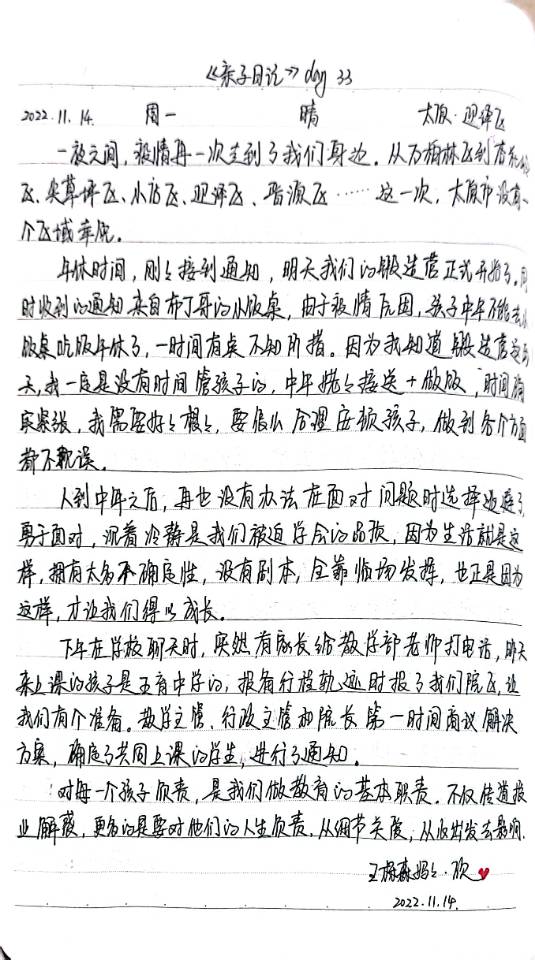 《亲子日记》day 33
2022.11.14. 周一 晴 太原·迎泽区
一夜之间，疫情再一次走到了我们身边。从万柏林区到杏花岭
区、尖草坪区、小店区、迎泽区、晋源区……这一次，太原市没有一
个区域幸免。
午休时间，刚刚接到通知，明天我们的锻造营正式开始了。同
时收到的通知来自布丁哥的小饭桌，由于疫情原因，孩子中午不能去小
饭桌吃饭午休了，一时间有点不知所措。因为我知道锻造营这
天，我一定是没有时间管孩子的，中午妈妈接送+做饭，时间确
实紧张，我需要好好想想，要怎么合理安顿孩子，做到各个方面
都不耽误。
人到中年之后，再也没有办法在面对问题时选择逃避了，
勇于面对，沉着冷静是我们被迫学会的品质，因为生活就是这
样，拥有太多不确定性，没有剧本，全靠临场发挥，也正是因为
这样，才让我们得以成长。
下午在学校聊天时，突然有家长给教学部老师打电话，昨天
来上课的孩子是五育中学的，报备行程轨迹时报了我们院区，让
我们有个准备。教学主管、行政主管和院长第一时间商议解决
方案，确定了共同上课的学生，进行了通知。
对每一个孩子负责，是我们做教育的基本职责。不仅传道授
业解惑，更多的是要对他们的人生负责，从细节关爱，从心出发去影响。
王梓森妈妈·欣
2022.11.14.